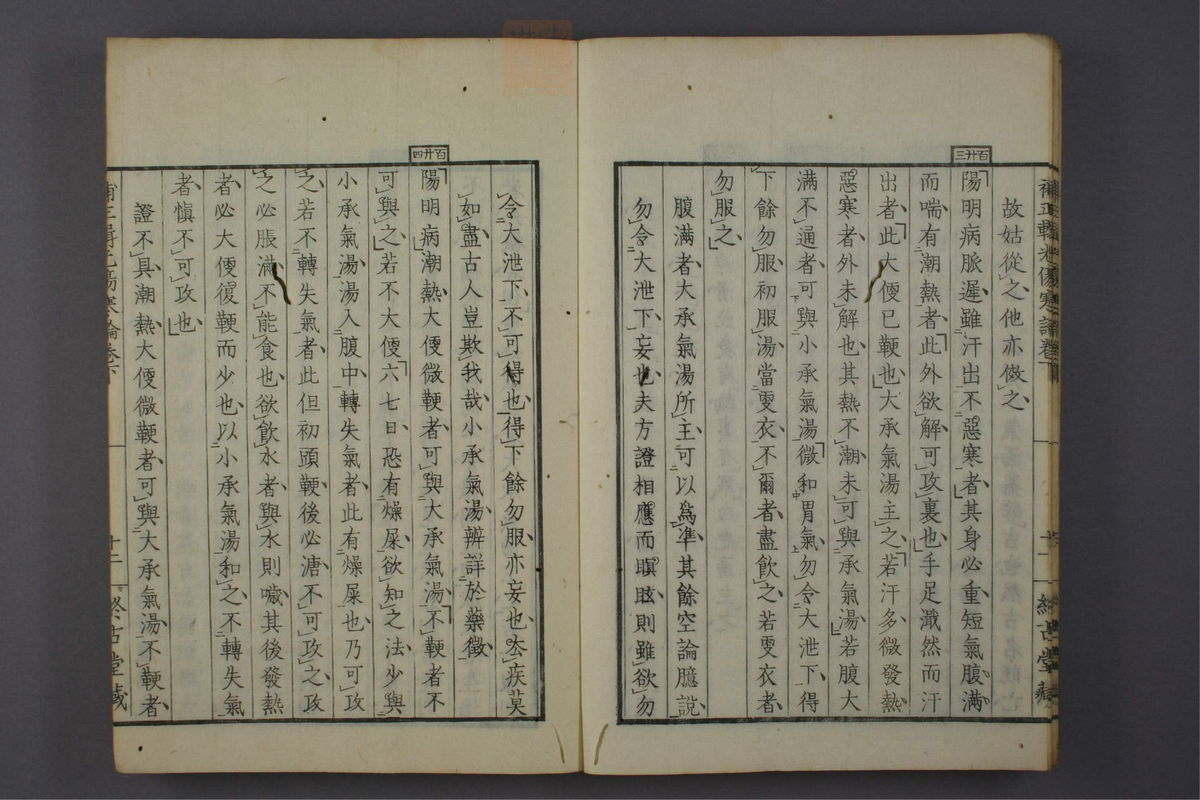 補正輯光傷寒論卷下
終古堂藏
百卅三
故姑從之他亦倣之
陽明病脈遲雖汗出不惡寒者其身必重短氣腹滿
而喘有潮熱者此外欲解可攻裏也手足濈然而汗
出者此大便已鞕也大承氣湯主之若汗多微發熱
惡寒者外未解也其熱不潮未可與承氣湯若腹大
滿不通者可與小承氣湯微和胃氣勿令大泄下得
下餘勿服初服湯當更衣不爾者盡飲之若更衣者
勿服之
腹滿者大承氣湯所主可以為準其餘空論臆說
勿令大泄下妄也夫方證相應而瞑眩則雖欲勿
百卅四
令大泄下不可得也得下餘勿服亦妄也欲疾莫
如盡古人豈欺我哉小承氣湯辨詳於藥徵
陽明病潮熱大便微鞕者可與大承氣湯不鞕者不
可與之若不大便六七日恐有燥屎欲知之法少與
小承氣湯湯入腹中轉失氣者此有燥屎也乃可攻
之若不轉失氣者此但初頭鞕後必溏不可攻之攻
之必脹滿不能食也欲飲水者與水則噦其後發熱
者必大便復鞕而少也以小承氣湯和之不轉失氣
者慎不可攻也
證不具潮熱大便微鞕者可與大承氣湯不鞕者
補正輯光傷寒論卷下
十二
終古堂藏